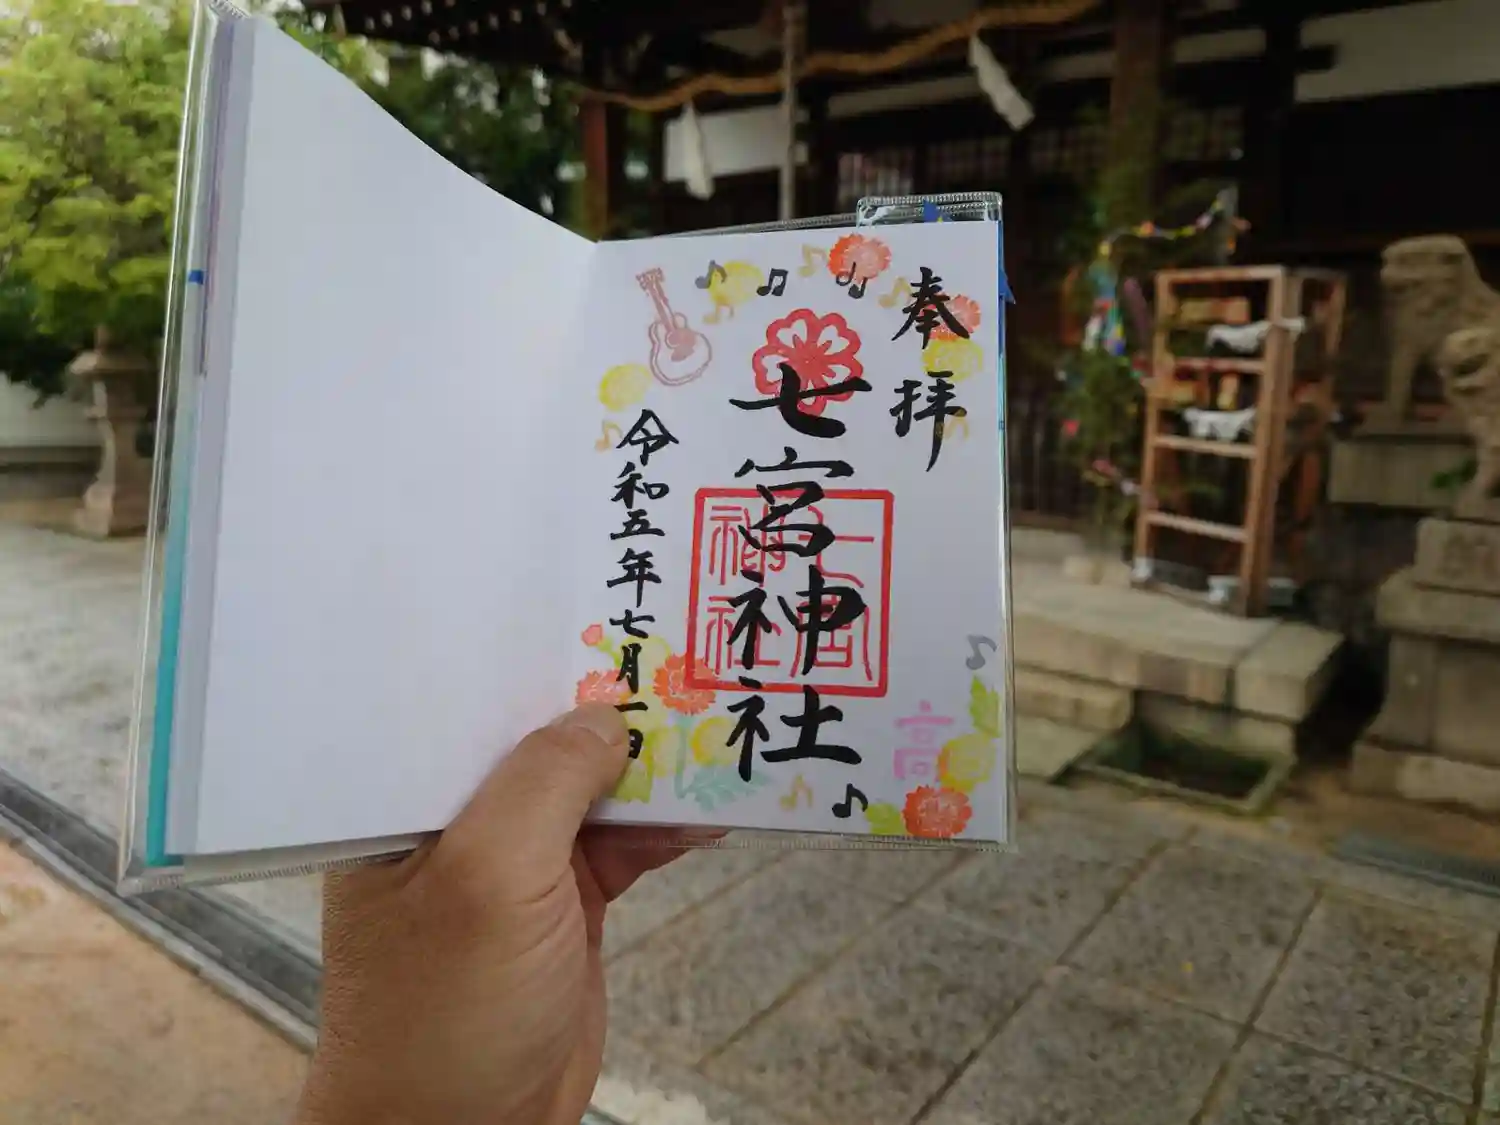 奉拝
七宮神社
七宮神社
高
令和五年七月一日